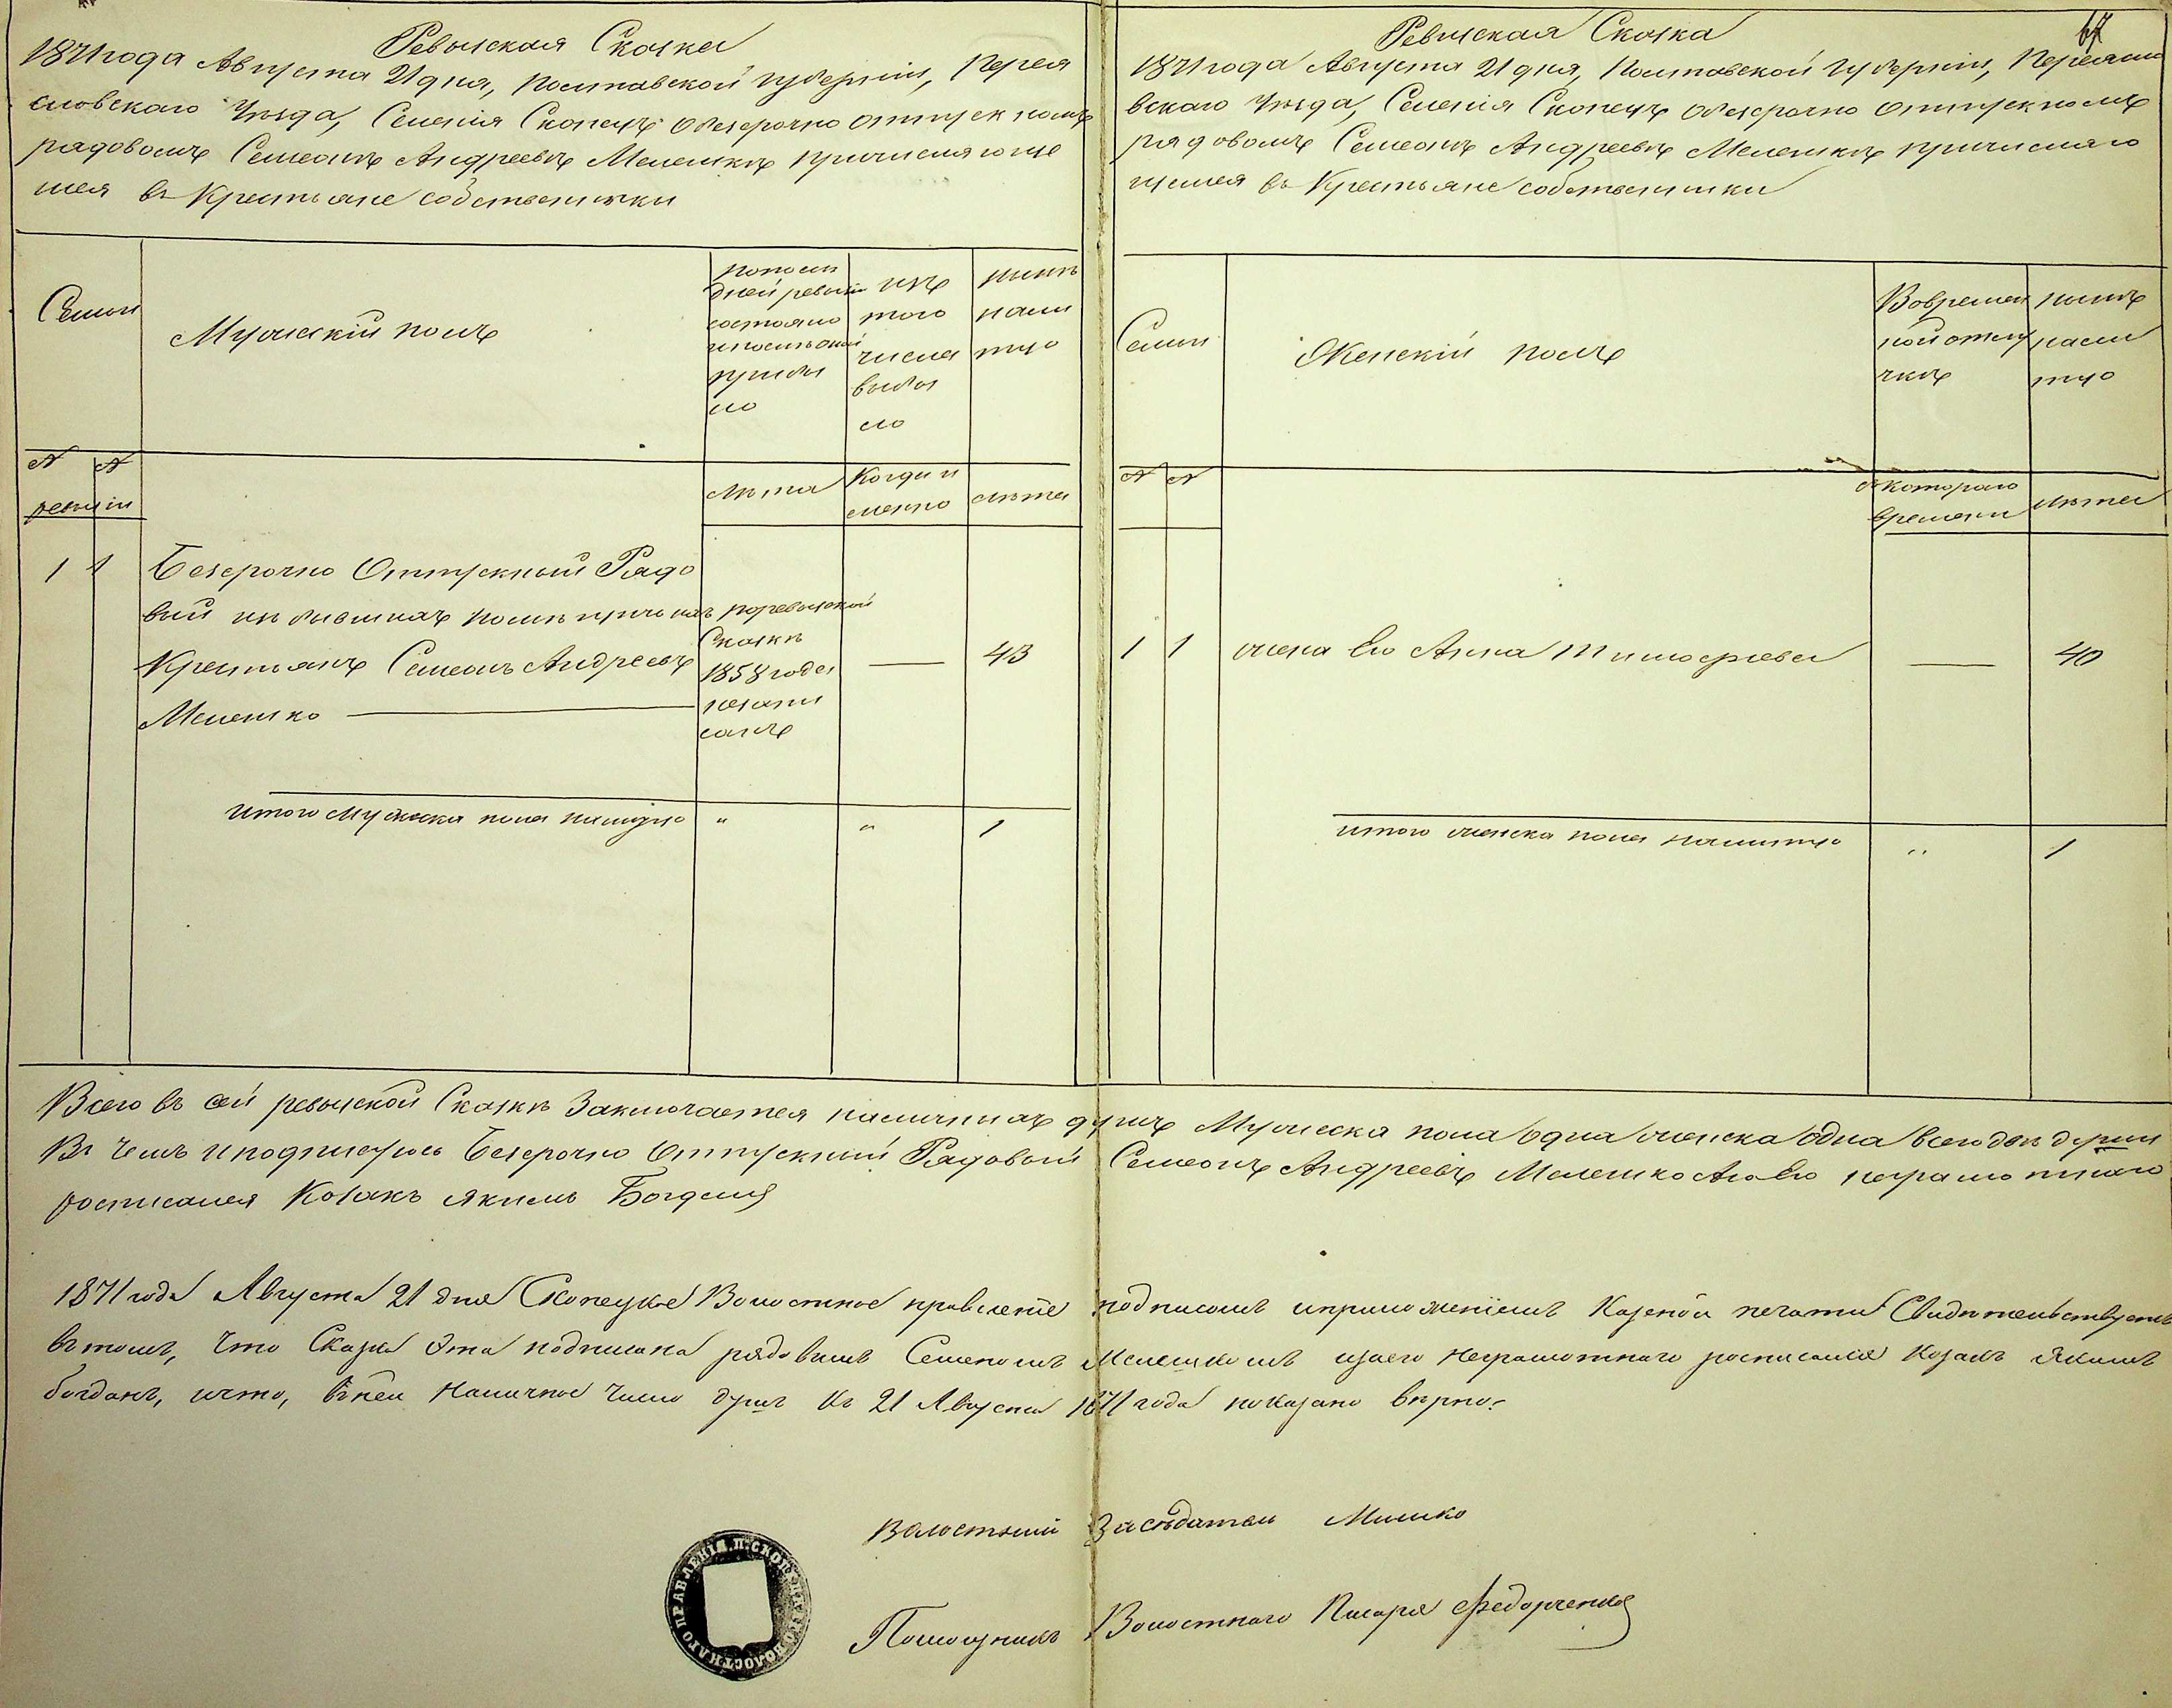 Ревизская Сказка
1871 года Августа 21 дня, Полтавской губернии, Перея
словскаго Уезда, Селенія Скопецъ о безсрочно отпускномъ
рядовомъ Семеонъ Андреевъ Мелешкъ причисляюще
мся въ Крестьяне собственники
Семьи
Мужескій полъ
по послѣ
дней ревизіи
состояло
и после оной
прибы
ло
изъ
того
числа
выбы
ло
нынѣ
нали
цо
№ №
ревизіи
лѣта
Когда и
менно
лѣта
1 1
Безсрочно Отпускный Рядо
вый изъ бывшихъ помѣщичьихъ
Крестьянъ Семеонъ Андреевъ
Мелешко
по ревизской
Сказкѣ
1858 года
незапи
санъ
—
43
итого мужеска пола налицо
"
"
1
67
Ревизская Сказка
1871 года Августа 21 дня, Полтавской губерніи, Переясло
вскаго Уезда, Селенія Скопецъ о безсрочно отпускномъ
рядовомъ Семеонъ Андреевъ Мелешкъ причисляю
щемся въ Крестьяне собственники
Семьи
Женскій полъ
Во времен
ной отлу
чкѣ
нынѣ
нали
цо
№ №
съ котораго
времени
лѣта
1 1
жена Его Анна Тимофеева
—
40
итого женска пола налицо
"
1
Всего въ сей ревизской Сказкѣ Заключается наличныхъ душъ Мужеска пола одна женска одна всего двѣ души
Въ чемъ и подписуюсь Безсрочно Отпускный Рядовый Семеонъ Андреевъ Мелешко а за Его неграмотнаго
росписался Козакъ Якимъ Богданъ
1871 года Августа 21 дня Скопецкое Волостное правленіе подписомъ и приложеніемъ Казеной печати Свидѣтельствуетъ
въ томъ, что Сказка Эта подписана рядовымъ Семеномъ Мелешкомъ а за его Неграмотнаго росписался Козакъ Якимъ
Богданъ, и что, въ ней Наличное Число душъ къ 21 Августа 1871 года показано вѣрно.
Волостный Засѣдатель Милько
Помощникъ Волостнаго Писаря Федорченко
ВОЛОСТНАГО ПРАВЛЕНІЯ